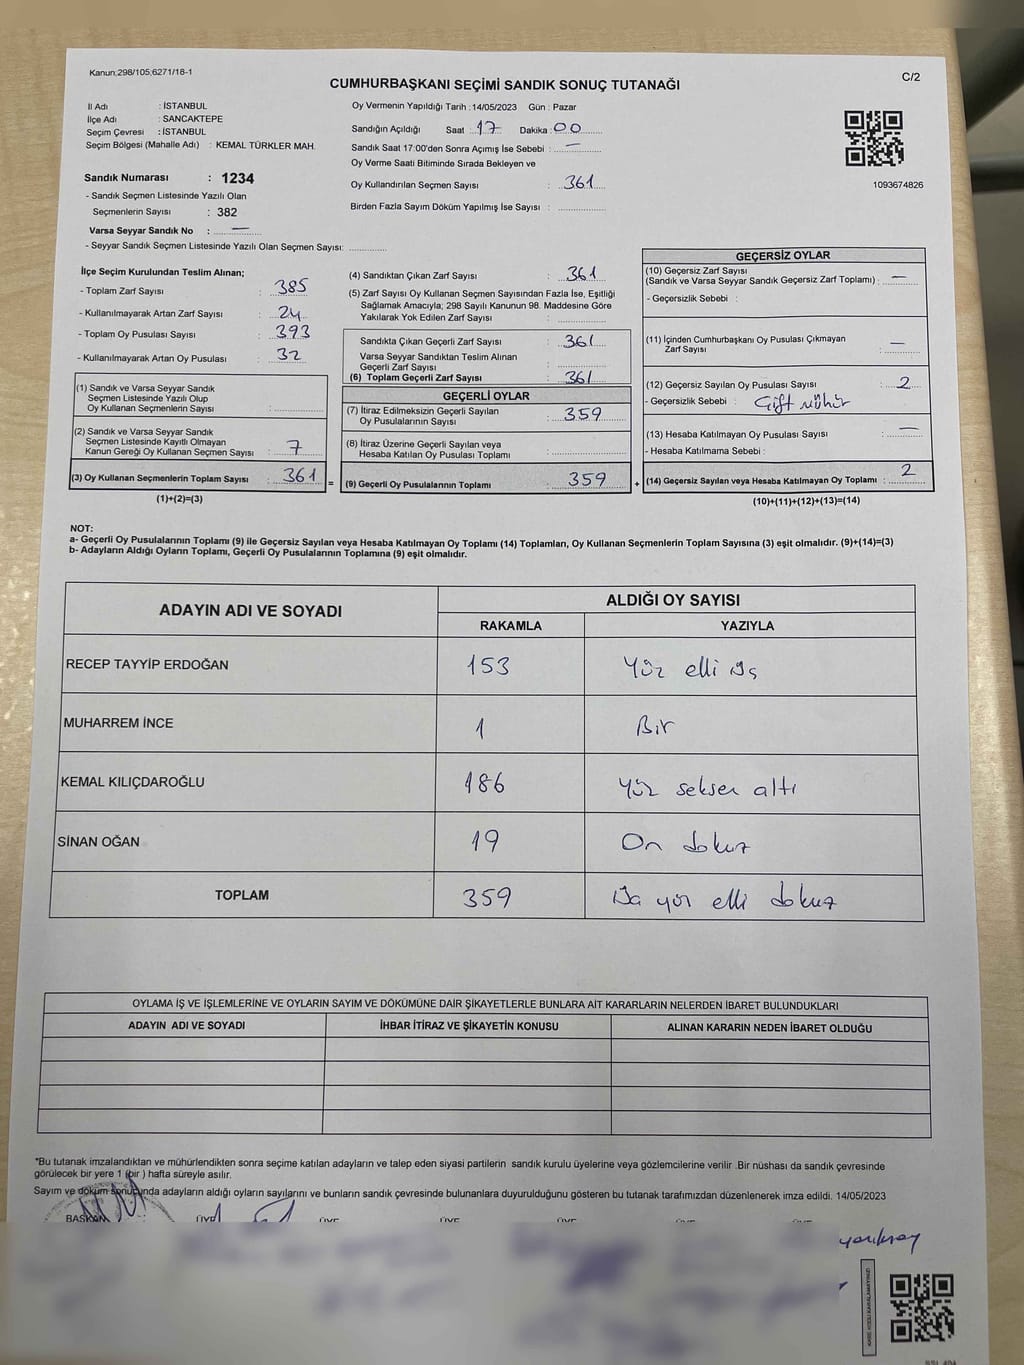 Kanun;298/105;6271/18-1
C/2
CUMHURBAŞKANI SEÇİMİ SANDIK SONUÇ TUTANAĞI
İl Adı : İSTANBUL
İlçe Adı : SANCAKTEPE
Seçim Çevresi : İSTANBUL
Seçim Bölgesi (Mahalle Adı) : KEMAL TÜRKLER MAH.
Sandık Numarası : 1234
- Sandık Seçmen Listesinde Yazılı Olan
Seçmenlerin Sayısı : 382
Varsa Seyyar Sandık No : —
- Seyyar Sandık Seçmen Listesinde Yazılı Olan Seçmen Sayısı: ............
Oy Vermenin Yapıldığı Tarih :14/05/2023 Gün : Pazar
Sandığın Açıldığı Saat 17 Dakika : 00
Sandık Saat 17:00'den Sonra Açımış İse Sebebi : —
Oy Verme Saati Bitiminde Sırada Bekleyen ve
Oy Kullandırılan Seçmen Sayısı : 361
Birden Fazla Sayım Döküm Yapılmış İse Sayısı : ............
1093674826
İlçe Seçim Kurulundan Teslim Alınan;
- Toplam Zarf Sayısı : 385
- Kullanılmayarak Artan Zarf Sayısı : 24
- Toplam Oy Pusulası Sayısı : 393
- Kullanılmayarak Artan Oy Pusulası : 32
(1) Sandık ve Varsa Seyyar Sandık
Seçmen Listesinde Yazılı Olup
Oy Kullanan Seçmenlerin Sayısı : ............
(2) Sandık ve Varsa Seyyar Sandık
Seçmen Listesinde Kayıtlı Olmayan
Kanun Gereği Oy Kullanan Seçmen Sayısı : 7
(3) Oy Kullanan Seçmenlerin Toplam Sayısı : 361
(1)+(2)=(3)
=
(4) Sandıktan Çıkan Zarf Sayısı : 361
(5) Zarf Sayısı Oy Kullanan Seçmen Sayısından Fazla İse, Eşitliği
Sağlamak Amacıyla; 298 Sayılı Kanunun 98. Maddesine Göre
Yakılarak Yok Edilen Zarf Sayısı : ............
Sandıkta Çıkan Geçerli Zarf Sayısı : 361
Varsa Seyyar Sandıktan Teslim Alınan
Geçerli Zarf Sayısı : ............
(6) Toplam Geçerli Zarf Sayısı : 361
GEÇERLİ OYLAR
(7) İtiraz Edilmeksizin Geçerli Sayılan
Oy Pusulasının Sayısı : 359
(8) İtiraz Üzerine Geçerli Sayılan veya
Hesaba Katılan Oy Pusulası Toplamı : ............
(9) Geçerli Oy Pusulalarının Toplamı : 359
+
GEÇERSİZ OYLAR
(10) Geçersiz Zarf Sayısı
(Sandık ve Varsa Seyyar Sandık Geçersiz Zarf Toplamı) : —
- Geçersizlik Sebebi :
(11) İçinden Cumhurbaşkanı Oy Pusulası Çıkmayan
Zarf Sayısı : —
(12) Geçersiz Sayılan Oy Pusulası Sayısı : 2
- Geçersizlik Sebebi : Çift mühür
(13) Hesaba Katılmayan Oy Pusulası Sayısı : —
- Hesaba Katılmama Sebebi :
(14) Geçersiz Sayılan veya Hesaba Katılmayan Oy Toplamı : 2
(10)+(11)+(12)+(13)=(14)
NOT:
a- Geçerli Oy Pusulalarının Toplamı (9) ile Geçersiz Sayılan veya Hesaba Katılmayan Oy Toplamı (14) Toplamları, Oy Kullanan Seçmenlerin Toplam Sayısına (3) eşit olmalıdır. (9)+(14)=(3)
b- Adayların Aldığı Oyların Toplamı, Geçerli Oy Pusulalarının Toplamına (9) eşit olmalıdır.
ADAYIN ADI VE SOYADI
ALDIĞI OY SAYISI
RAKAMLA YAZIYLA
RECEP TAYYİP ERDOĞAN 153 Yüz elli üç
MUHARREM İNCE 1 Bir
KEMAL KILIÇDAROĞLU 186 Yüz seksen altı
SİNAN OĞAN 19 On dokuz
TOPLAM 359 Üç yüz elli dokuz
OYLAMA İŞ VE İŞLEMLERİNE VE OYLARIN SAYIM VE DÖKÜMÜNE DAİR ŞİKAYETLERLE BUNLARA AİT KARARLARIN NELERDEN İBARET BULUNDUKLARI
ADAYIN ADI VE SOYADI İHBAR İTİRAZ VE ŞİKAYETİN KONUSU ALINAN KARARIN NEDEN İBARET OLDUĞU
*Bu tutanak imzalandıktan ve mühürlendikten sonra seçime katılan adayların ve talep eden siyasi partilerin sandık kurulu üyelerine veya gözlemcilerine verilir .Bir nüshası da sandık çevresinde
görülecek bir yere 1 (bir ) hafta süreyle asılır.
Sayım ve döküm sonucunda adayların aldığı oyların sayılarını ve bunların sandık çevresinde bulunanlara duyurulduğunu gösteren bu tutanak tarafımızdan düzenlenerek imza edildi. 14/05/2023
BAŞKAN ÜYE ÜYE ÜYE ÜYE ÜYE ÜYE